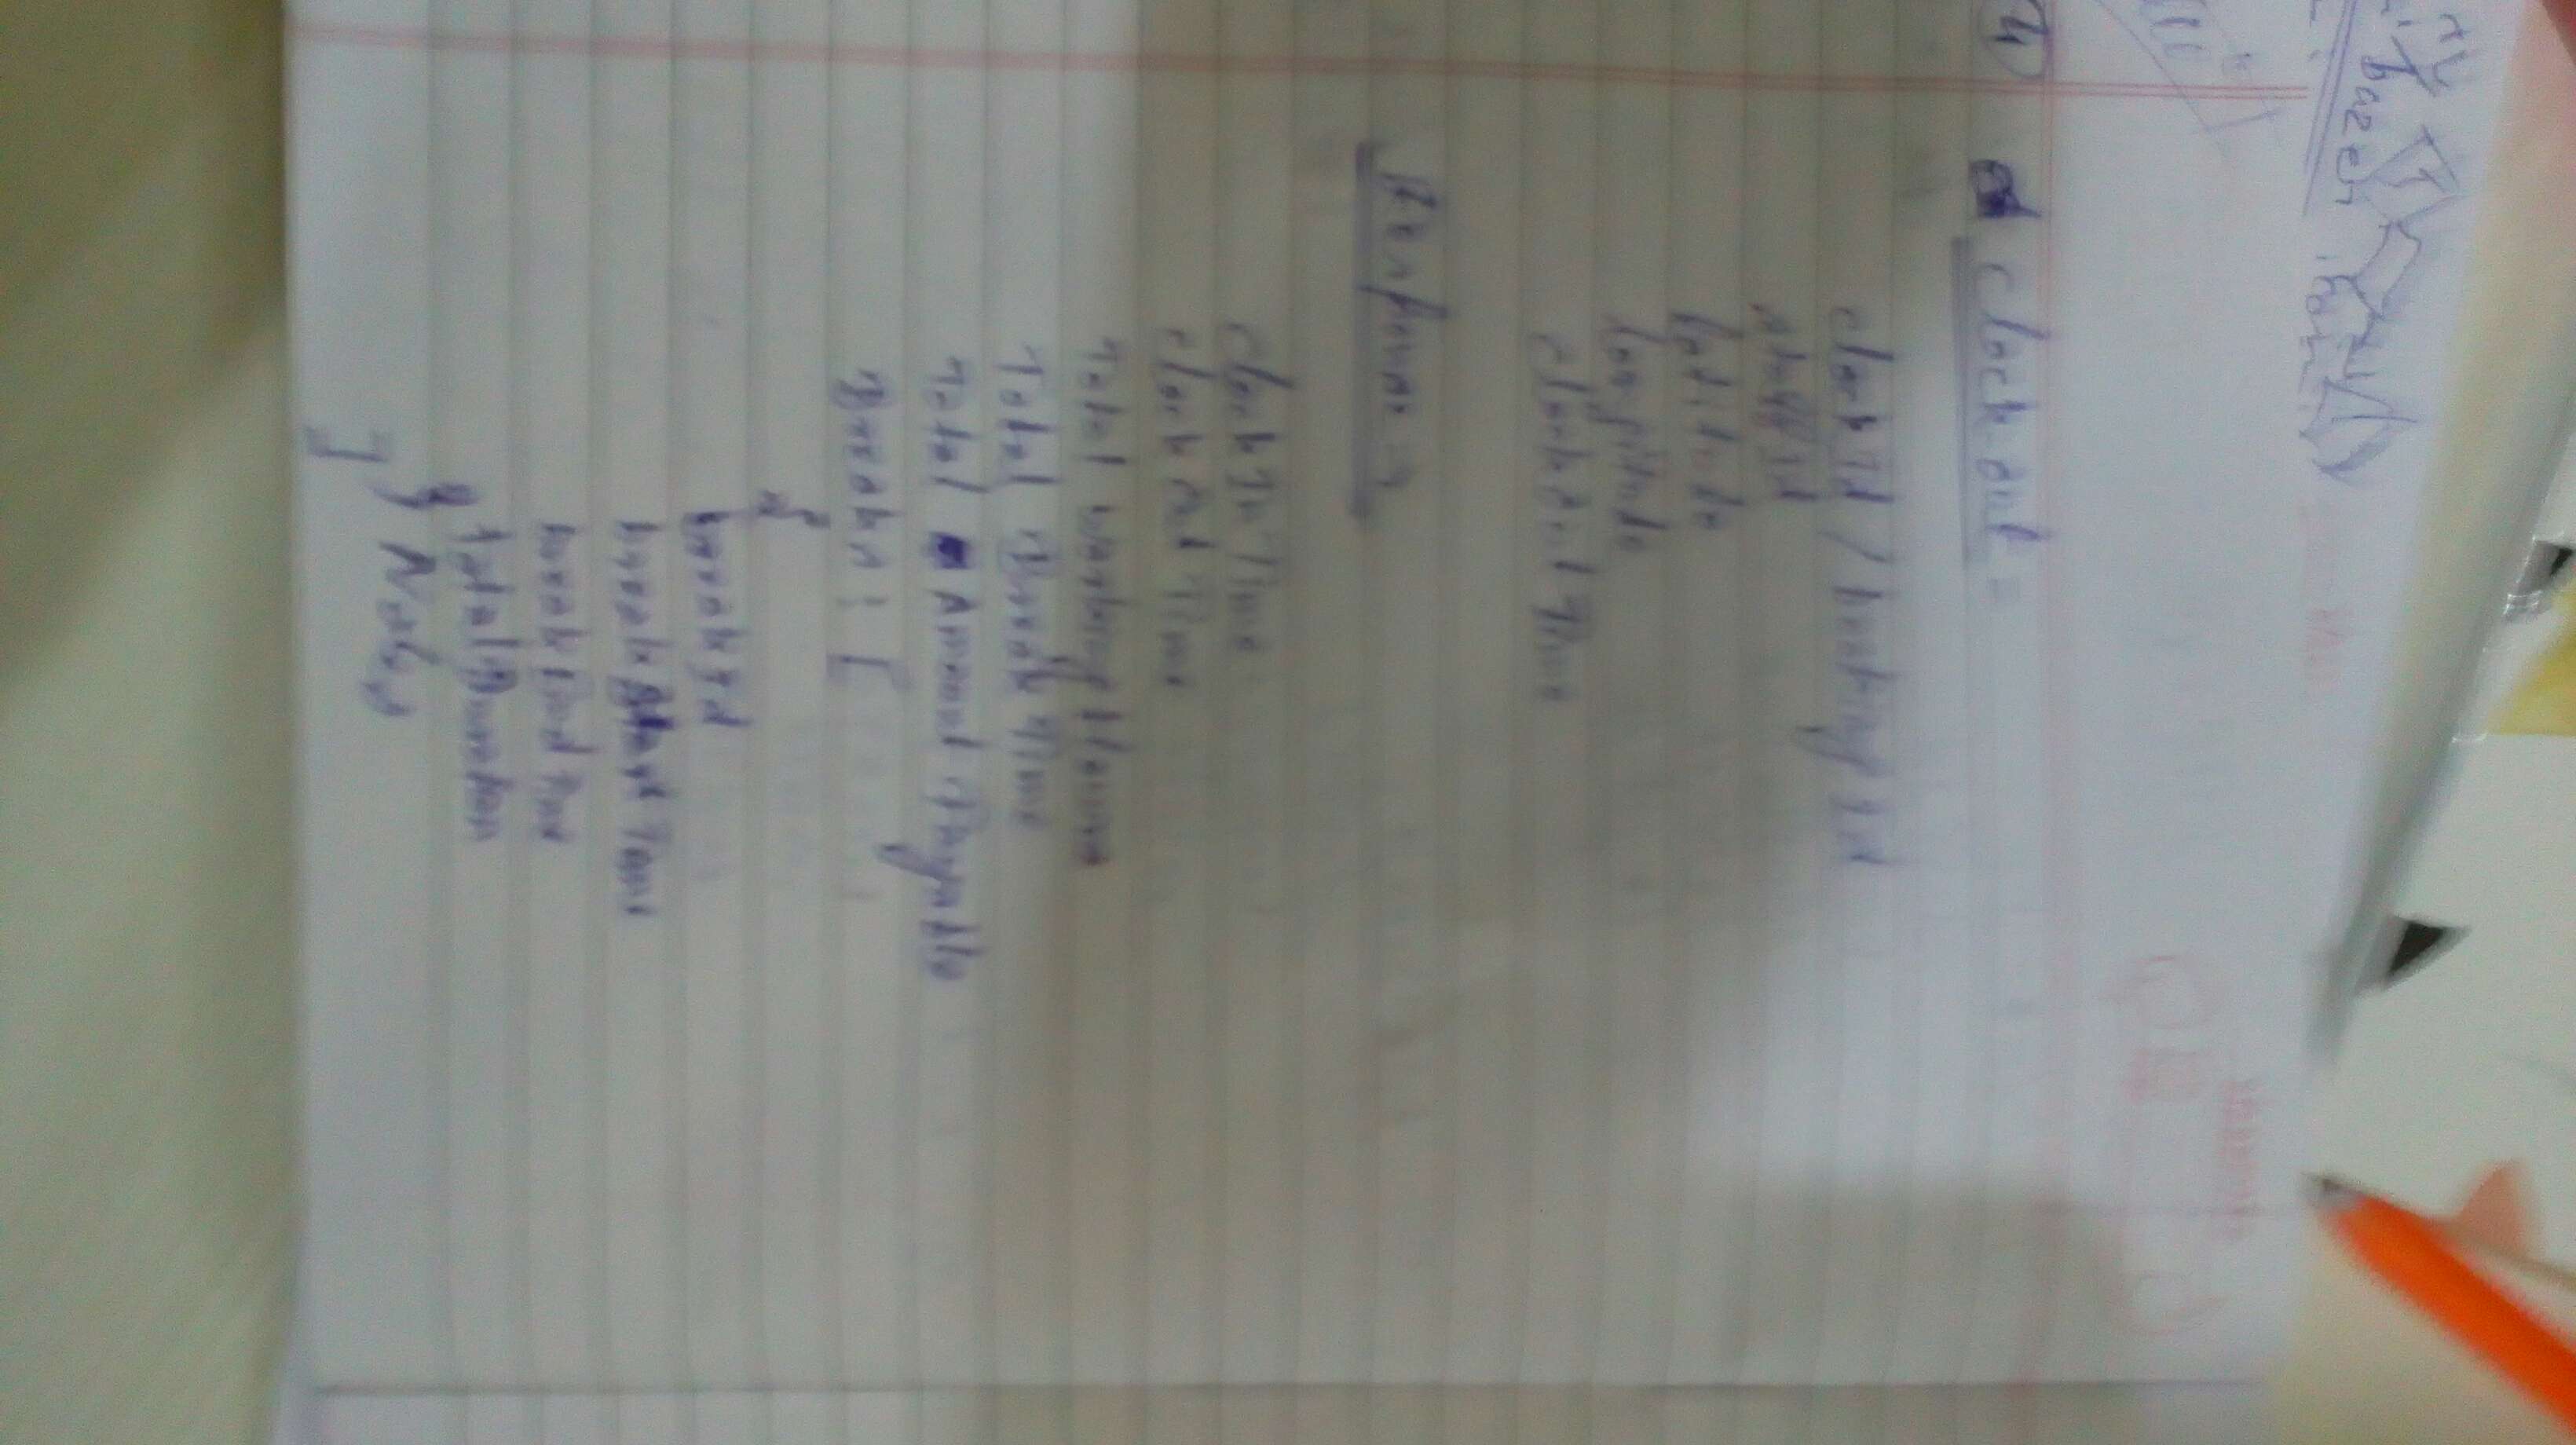 4) clock out =
clock Id / booking Id
staff Id
Latitude
Longitude
clock out Time
Response →
clock In Time
clock out Time
Total working Hours
Total Break Time
Total Amount Payable
Breaks : [
{
break Id
break Start Time
break End Time
total Duration
}
] Notes
bazer